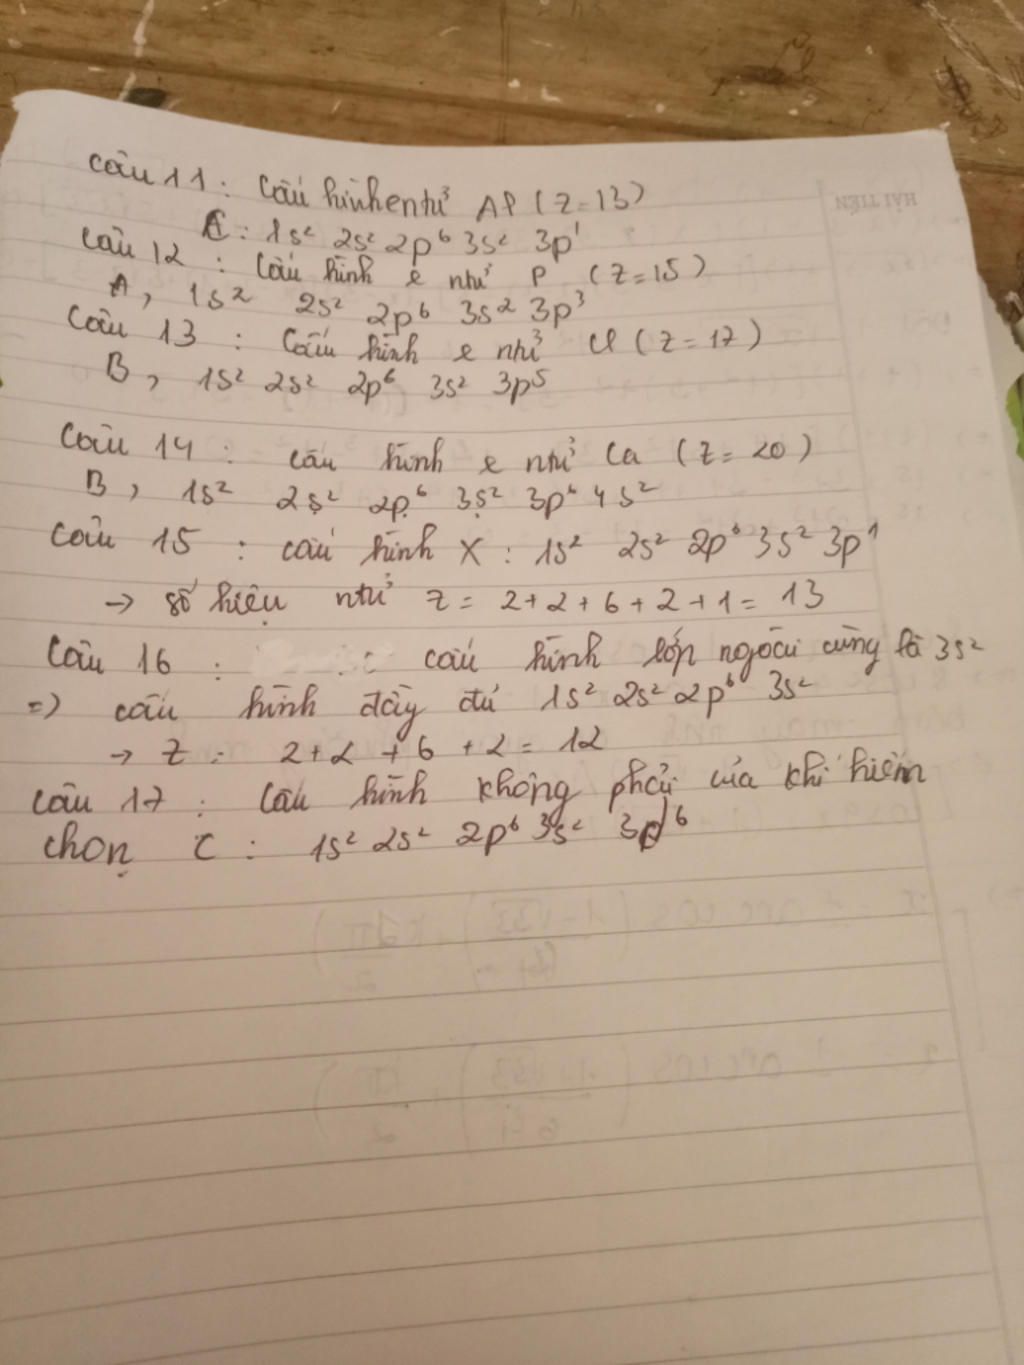 Câu 11 : Cấu hình e ntử Al (Z=13)
C : 1s² 2s² 2p⁶ 3s² 3p¹
Câu 12 : Cấu hình e ntử P (Z=15)
A, 1s² 2s² 2p⁶ 3s² 3p³
Câu 13 : Cấu hình e ntử Cl (Z=17)
B, 1s² 2s² 2p⁶ 3s² 3p⁵
Câu 14 : Cấu hình e ntử Ca (Z=20)
B, 1s² 2s² 2p⁶ 3s² 3p⁶ 4s²
Câu 15 : cấu hình X : 1s² 2s² 2p⁶ 3s² 3p¹
→ số hiệu ntử Z = 2+2+6+2+1= 13
Câu 16 : cấu hình lớp ngoài cùng là 3s²
=) cấu hình đầy đủ 1s² 2s² 2p⁶ 3s²
→ Z : 2+2+6+2= 12
Câu 17 : Cấu hình không phải của khí hiếm
chọn C : 1s² 2s² 2p⁶ 3s² 3p⁶
HẢI TIẾN